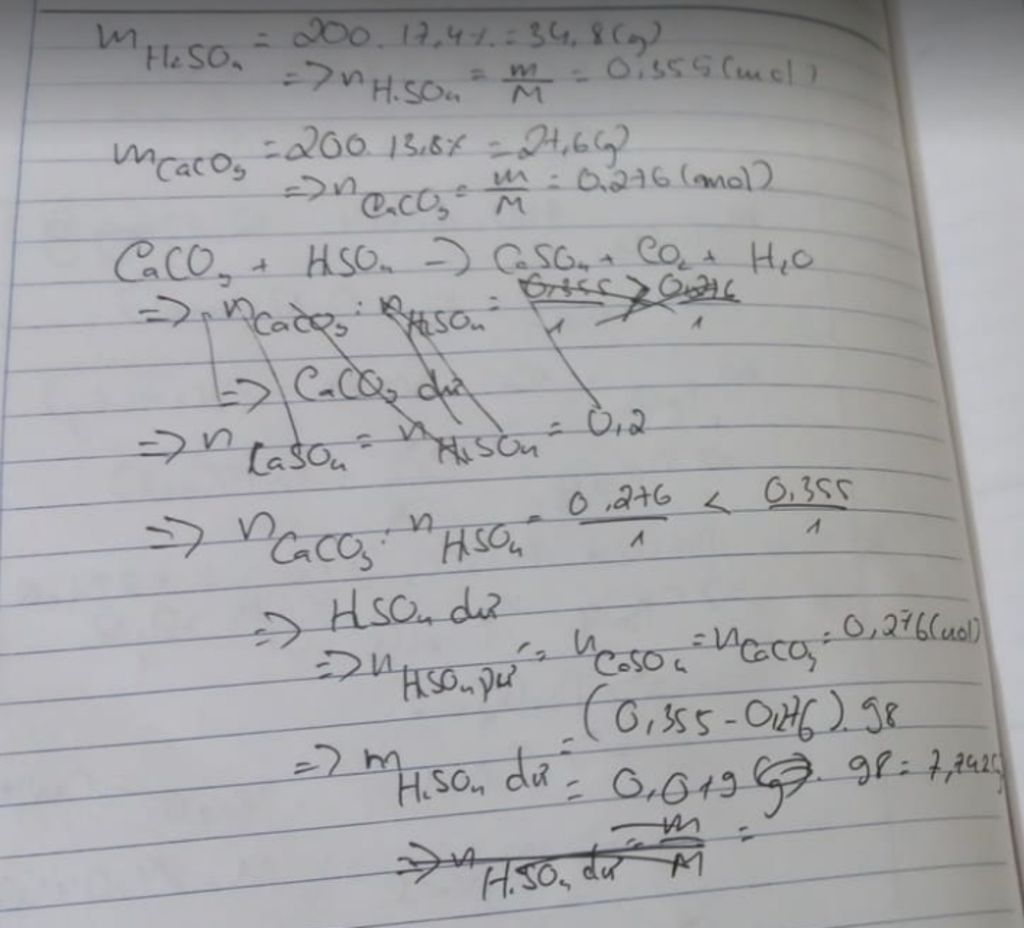 m H₂SO₄ = 200. 17,4% = 34,8(g)
=> n H₂SO₄ = m/M = 0,355(mol)
m CaCO₃ = 200. 13,8% = 27,6(g)
=> n CaCO₃ = m/M = 0,276(mol)
CaCO₃ + H₂SO₄ -> CaSO₄ + CO₂ + H₂O
=> n CaCO₃ : n H₂SO₄ = 0,355/1 > 0,276/1
=> CaCO₃ dư
=> n CaSO₄ = n H₂SO₄ = 0,2
=> n CaCO₃ : n H₂SO₄ = 0,276/1 < 0,355/1
=> H₂SO₄ dư
=> n H₂SO₄ pư = n CaSO₄ = n CaCO₃ = 0,276(mol)
=> m H₂SO₄ dư = (0,355 - 0,276). 98
= 0,079 . 98 = 7,742g
=> n H₂SO₄ dư = m/M =